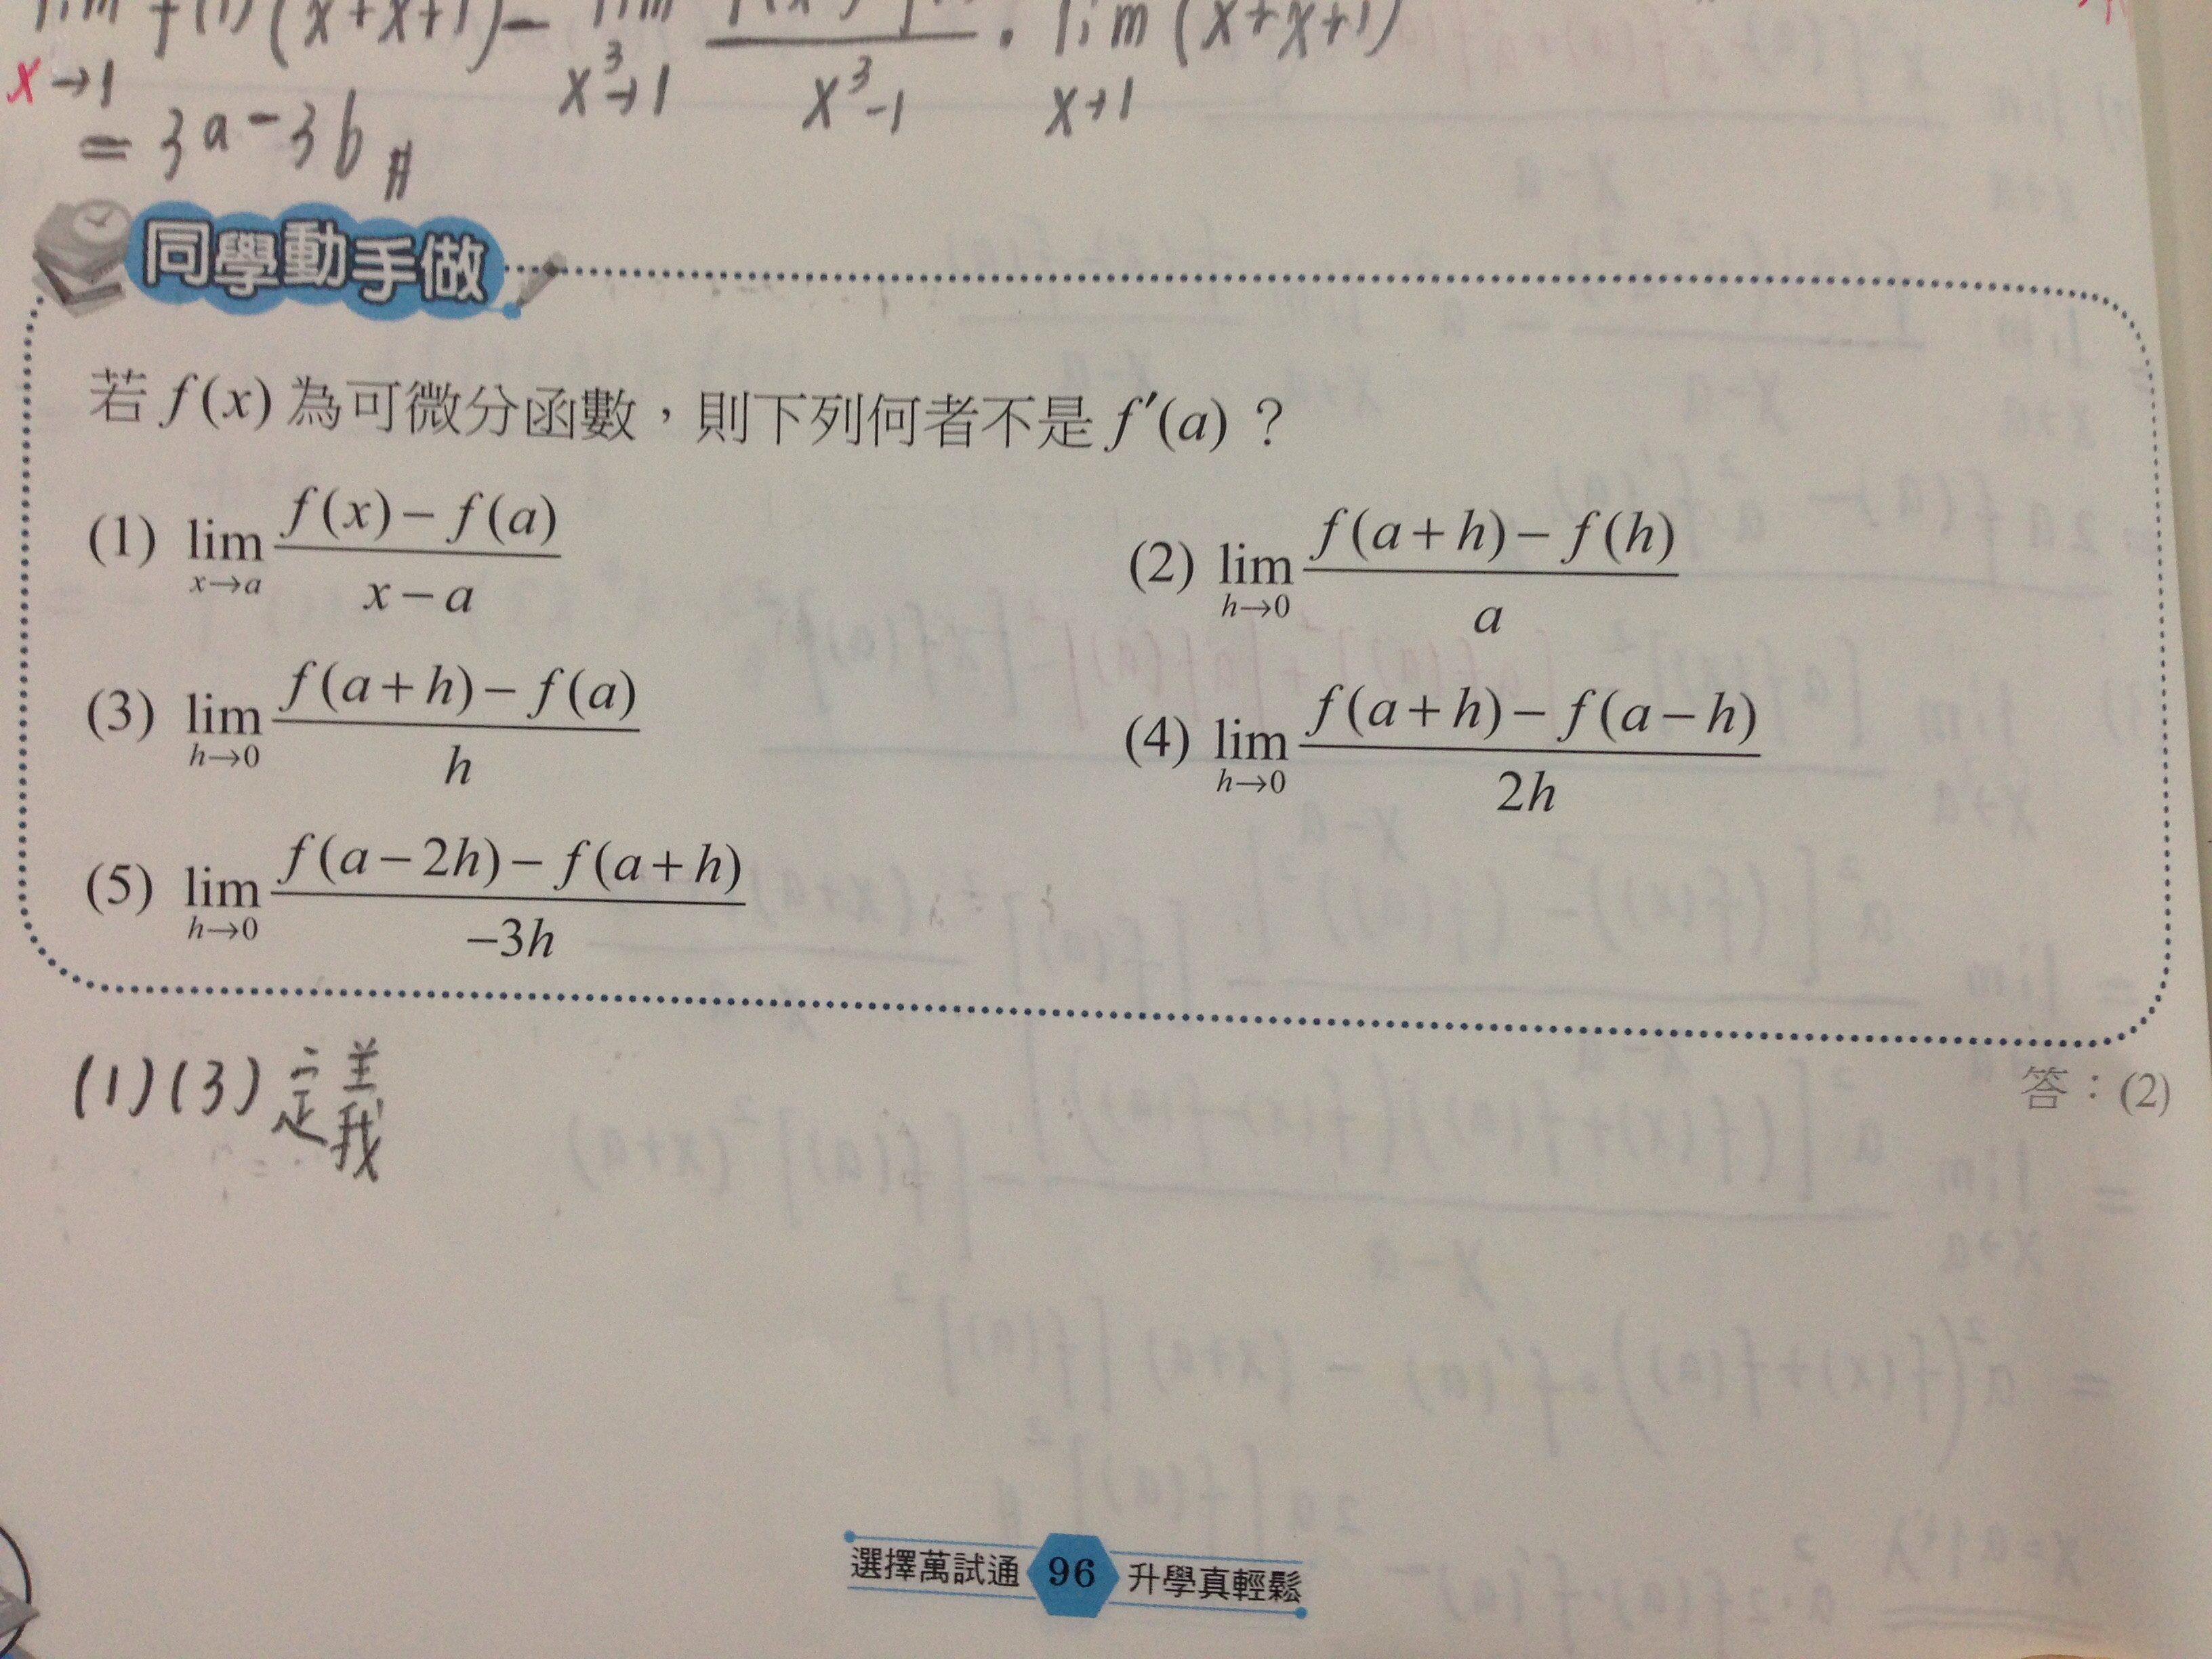 x→1 x³→1 x³-1 x→1
= 3a-3b #
同學動手做
若 f(x) 為可微分函數，則下列何者不是 f′(a)？
(1) lim x→a f(x)−f(a) / x−a (2) lim h→0 f(a+h)−f(h) / a
(3) lim h→0 f(a+h)−f(a) / h (4) lim h→0 f(a+h)−f(a−h) / 2h
(5) lim h→0 f(a−2h)−f(a+h) / −3h
答：(2)
(1)(3) 定義
選擇萬試通 96 升學真輕鬆